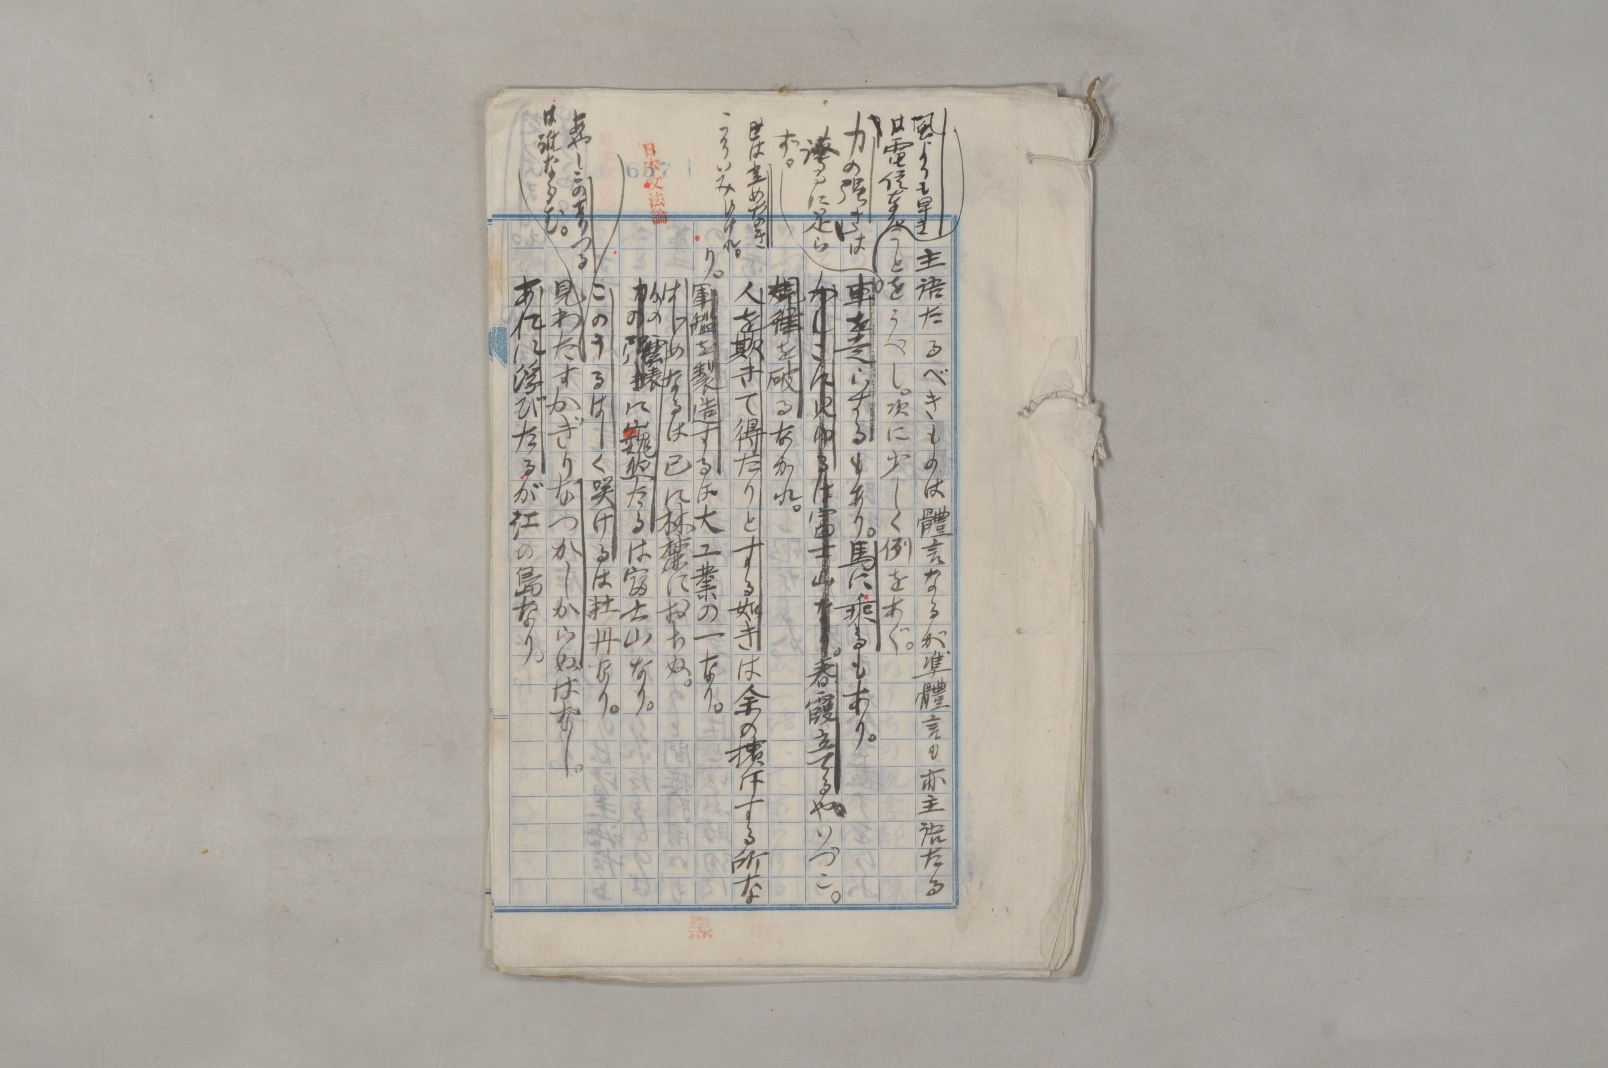 主語たるべきものは體言なるが準體言も亦主語たる
ことをうべし。次に少しく例をあぐ。
風よりも早き
は電信なり
車を走らするもあり。馬に乘るもあり。
力の強きは
かしこに見ゆるは富士山なり。春霞立てるやいづこ。
誇るに足ら
ず。
規律を破るなかれ。
人を欺きて得たりとする如きは余の擯斥する所な
り。
世は
こそいみじけれ。
軍艦を製造するは大工業の一なり。
はじめなるは已に林檎におちぬ。
に巍然たるは富士山なり。
日本文法論
667
このうるはしく咲けるは牡丹なり。
見わたすかぎりなつかしからぬはなし。
あしこのまつる
は誰なるぞ。
あれに浮びたるが江の島なり。